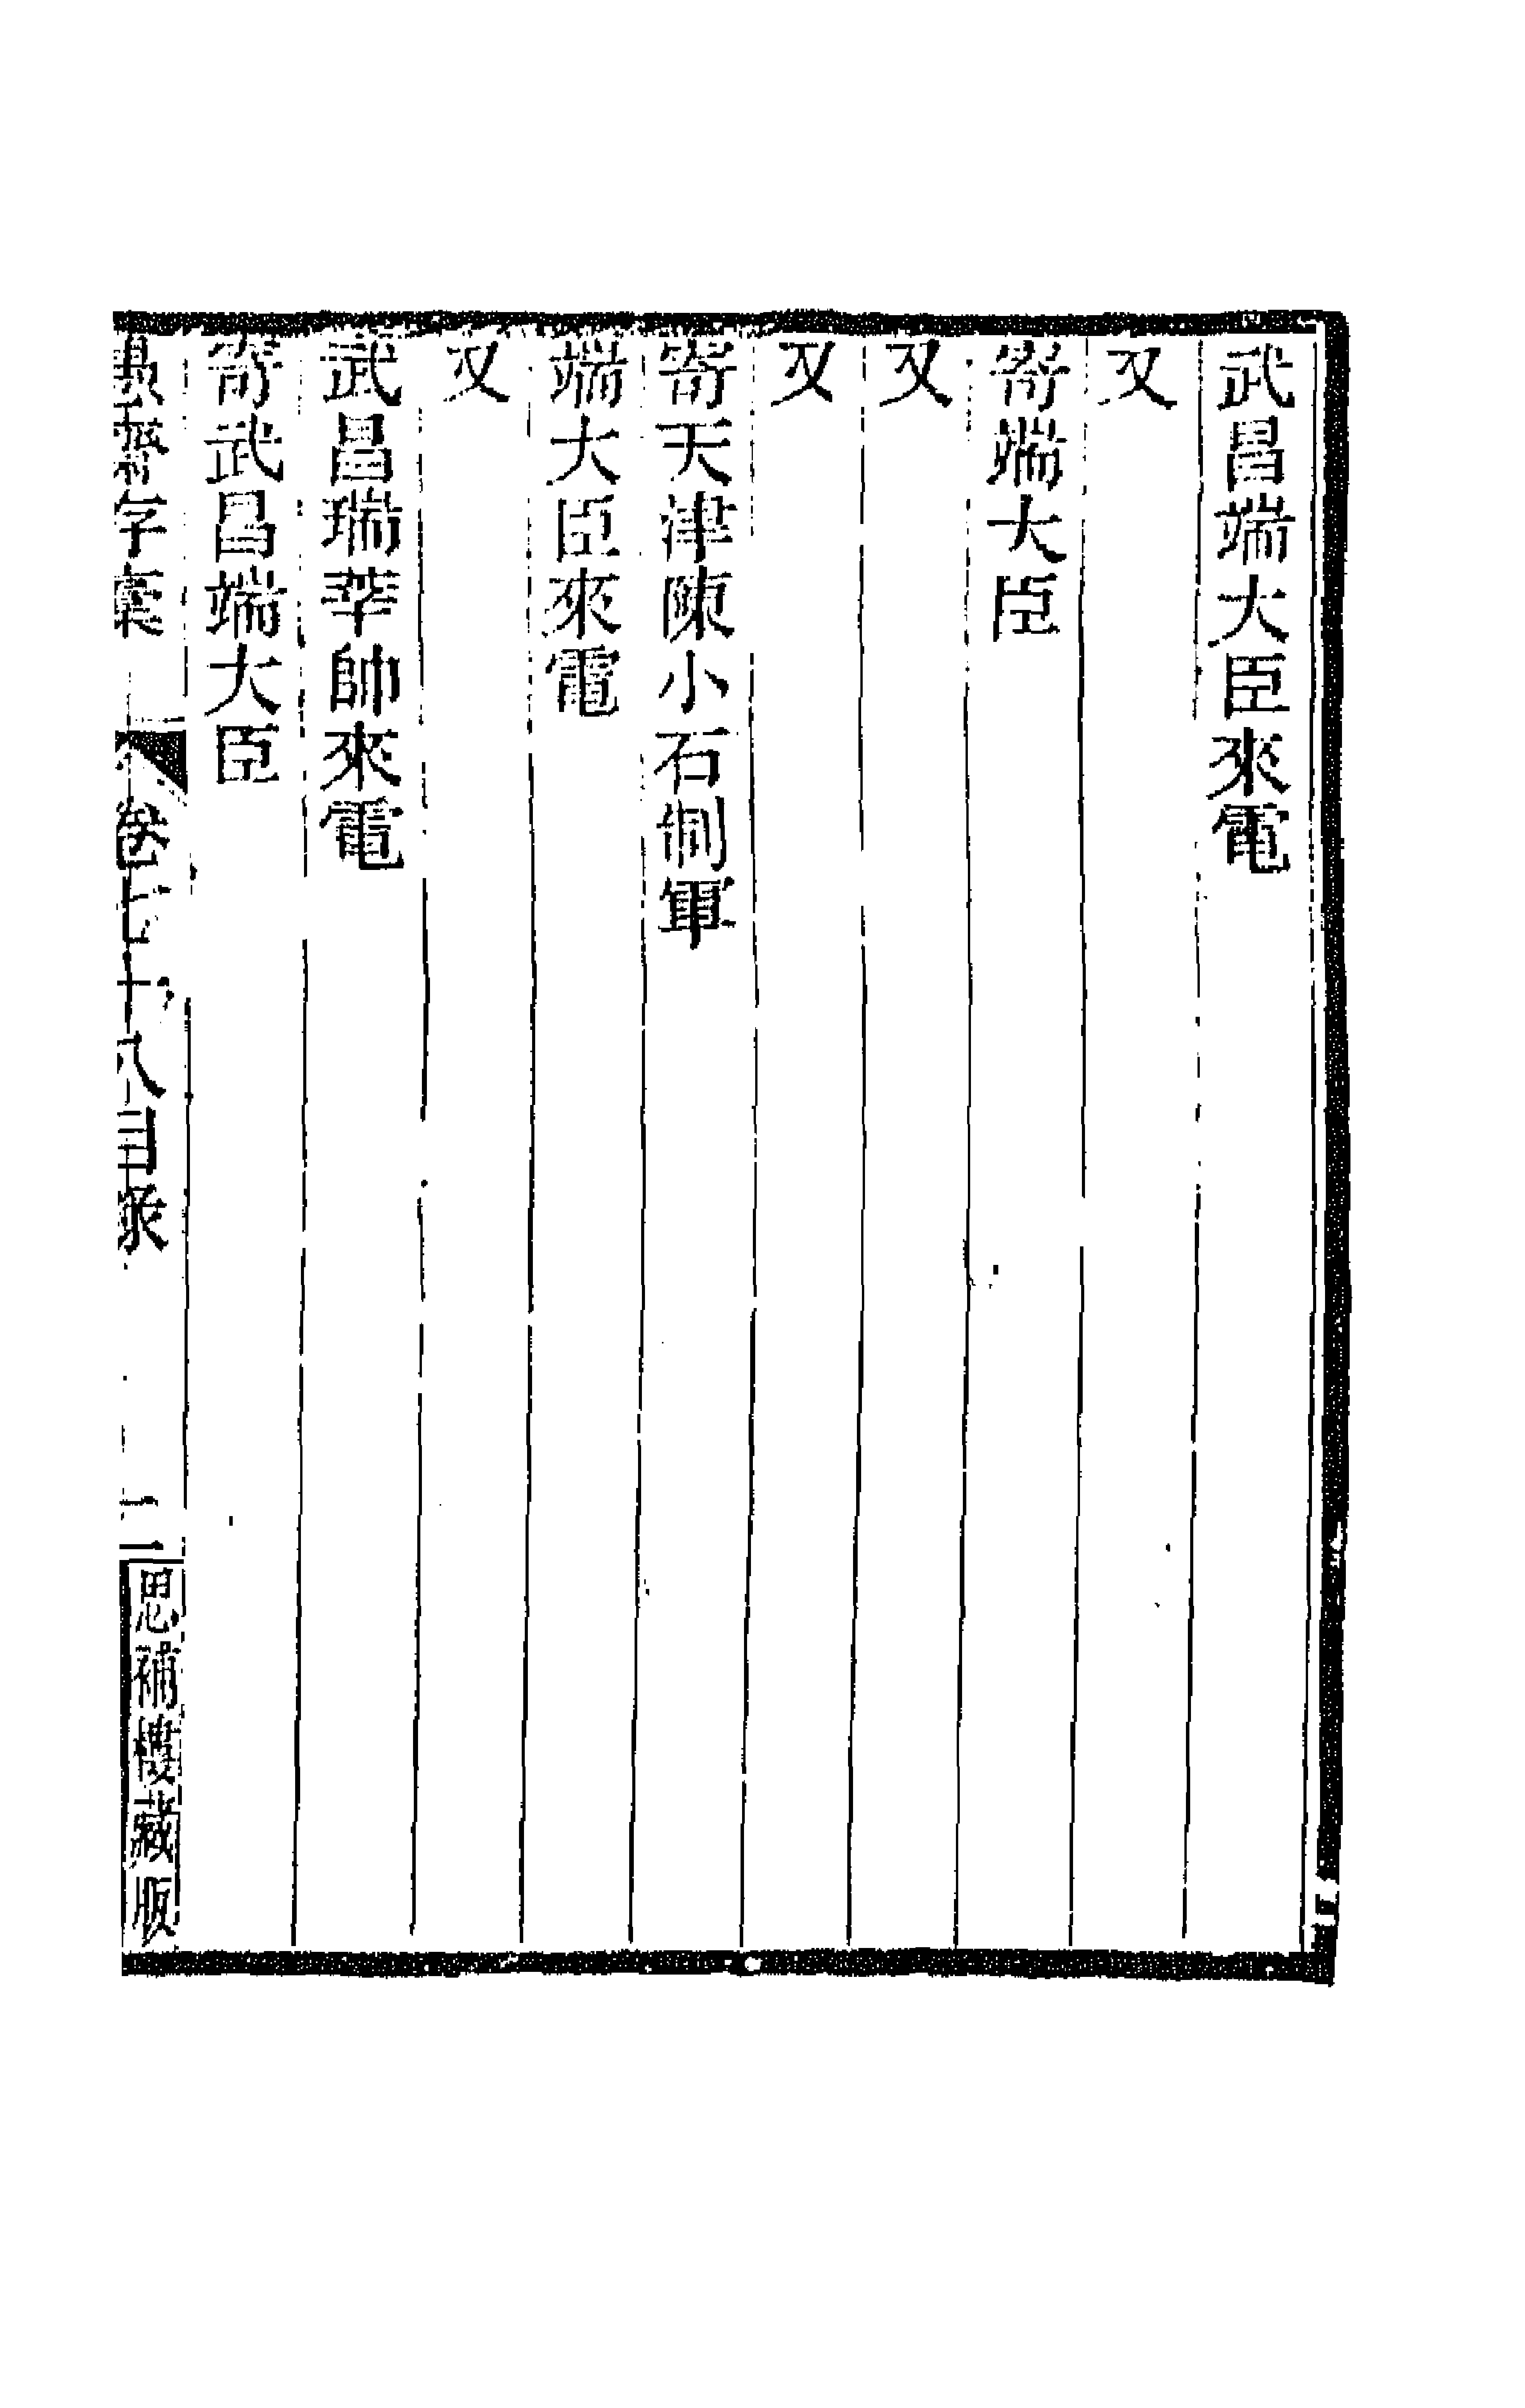 武昌端大臣來電
又
寄端大臣
又
又
寄天津陳小石制軍
端大臣來電
又
武昌瑞莘帥來電
寄武昌端大臣
愚齋存稾
卷七十八目錄
二
思補樓藏版